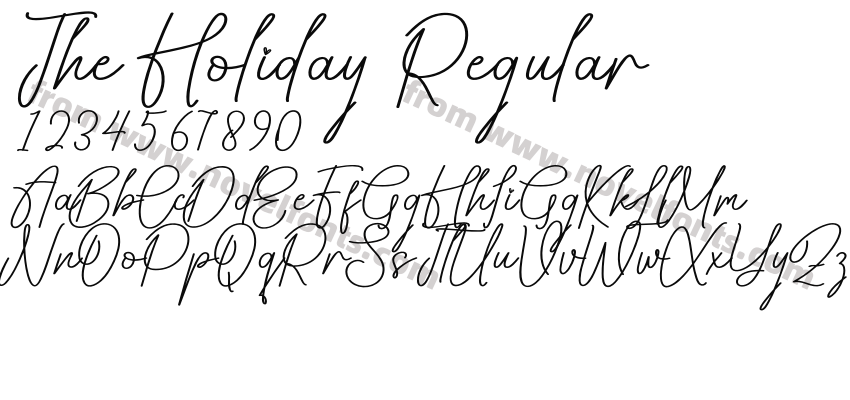 The Holiday Regular
1234567890
AaBbCcDdEeFfGgHhIiGgKkLlMm
NnOoPpQqRrSsTtUuVvWwXxYyZz
from www.novelfonts.com
from www.novelfonts.com